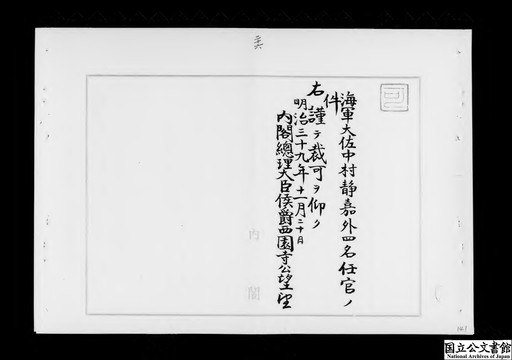 二十六
可
海軍大佐中村静嘉外四名任官ノ
件
右謹テ裁可ヲ仰ク
明治三十九年十一月二十日
内閣總理大臣侯爵西園寺公望
内閣
国立公文書館
National Archives of Japan